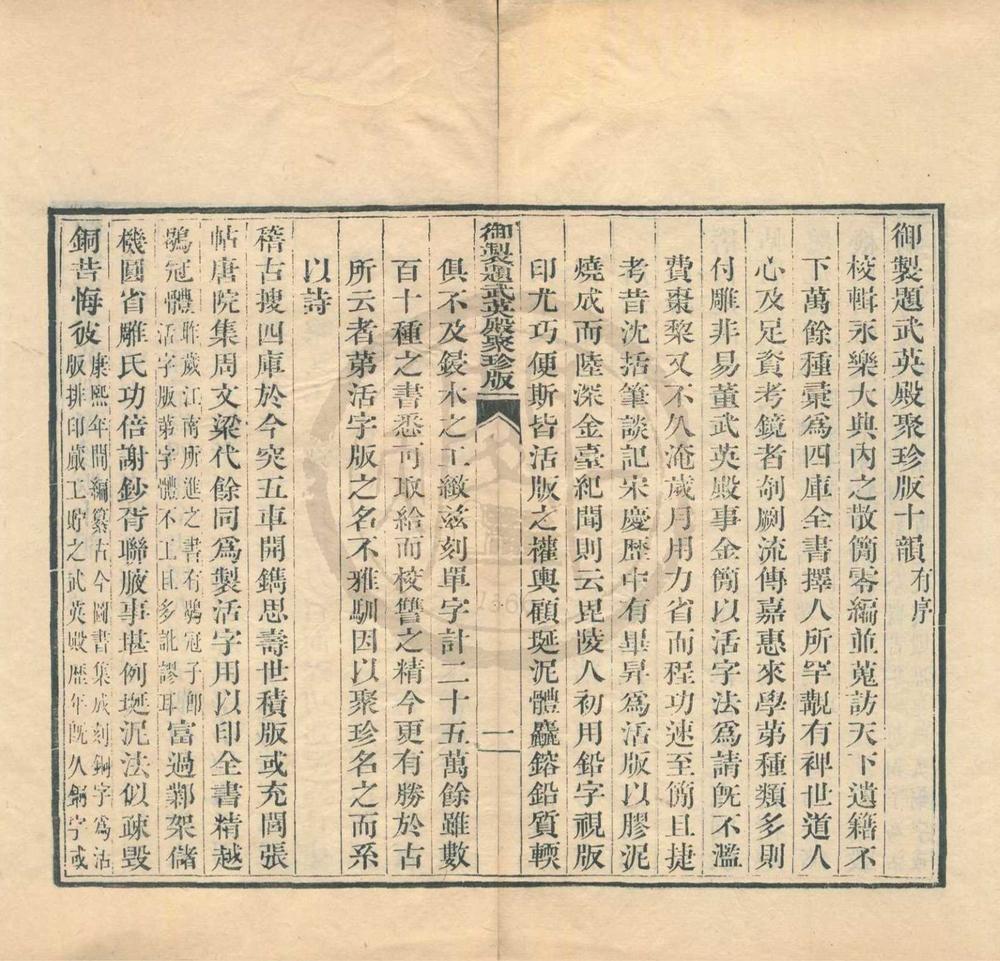 御製題武英殿聚珍版十韻有序
校輯永樂大典內之散簡零編並蒐訪天下遺籍不
下萬餘種彙爲四庫全書擇人所罕覯有裨世道人
心及足資考鏡者剞劂流傳嘉惠來學苐種類多則
付雕非易董武英殿事金簡以活字法爲請旣不濫
費棗棃又不久淹歲月用力省而程功速至簡且捷
考昔沈括筆談記宋慶歷中有畢昇爲活版以膠泥
燒成而陸深金臺紀聞則云毘陵人初用鉛字視版
印尤巧便斯皆活版之權輿顧埏泥體麤鎔鉛質輭
御製題武英殿聚珍版
一
俱不及鋟木之工緻兹刻單字計二十五萬餘雖數
百十種之書悉可取給而校讐之精今更有勝於古
所云者苐活字版之名不雅馴因以聚珍名之而系
以詩
稽古搜四庫於今突五車開鐫思壽世積版或充閭張
帖唐院集周文梁代餘同爲製活字用以印全書精越
鶡冠體昨歲江南所進之書有鶡冠子卽活字版苐字體不工且多訛謬耳富過鄴架儲
機圓省雕氏功倍謝鈔胥聯腋事堪例埏泥法似疎毀
銅昔悔彼康熙年間編纂古今圖書集成刻銅字爲活版排印蕆工貯之武英殿歷年旣久銅字或